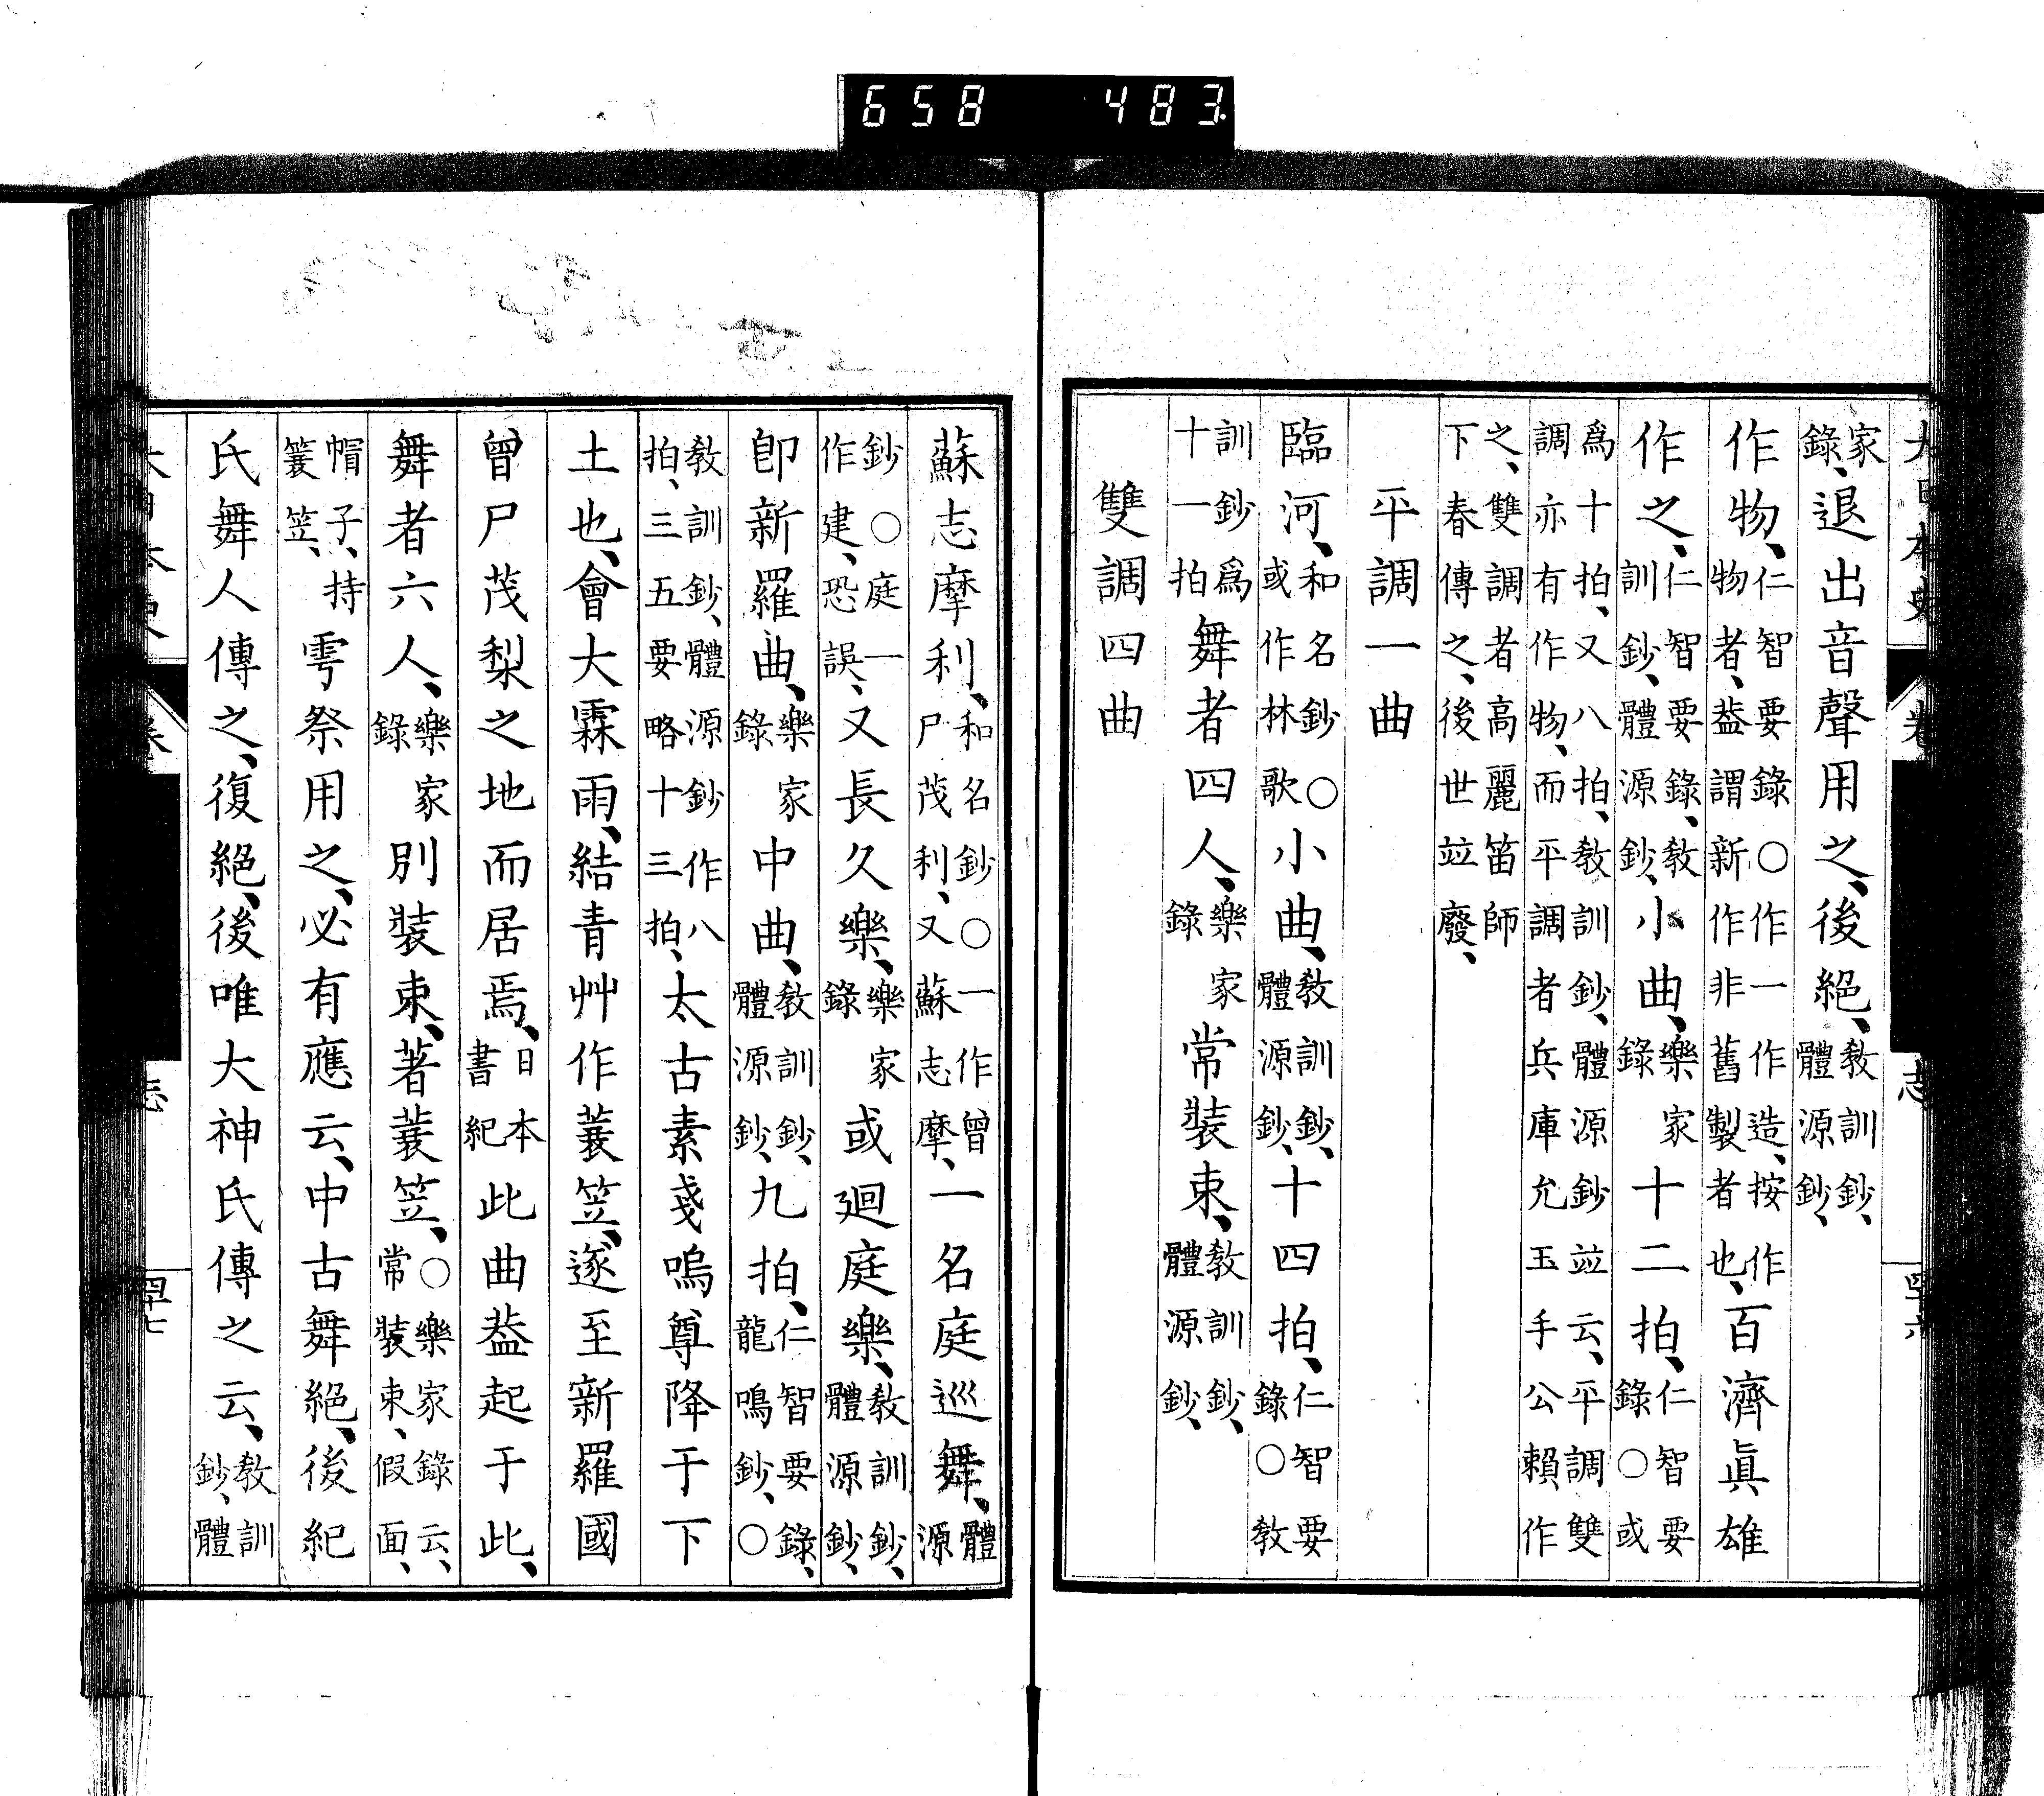 658 483
家錄、退出音聲用之、後絕、教訓鈔、體源鈔、
作物、仁智要錄○作一作造、按作物者、蓋謂新作非舊製者也、百濟眞雄
作之、仁智要錄、教訓鈔、體源鈔、小曲、樂家錄十二拍、仁智要錄○或
爲十拍、又八拍、教訓鈔、體源鈔竝云、平調雙調亦有作物、而平調者兵庫允玉手公賴作
之、雙調者高麗笛師下春傳之、後世竝廢、
平調一曲
臨河、和名鈔○或作林歌小曲、教訓鈔、體源鈔、十四拍、仁智要錄○教
訓鈔爲十一拍舞者四人、樂家錄常裝束、教訓鈔、體源鈔、
雙調四曲
蘇志摩利、和名鈔○一作曾尸茂利、又蘇志摩、一名庭巡舞、體源
鈔○庭一作建、恐誤、又長久樂、樂家錄或廻庭樂、教訓鈔、體源鈔、
卽新羅曲、樂家錄中曲、教訓鈔、體源鈔、九拍、仁智要錄、龍鳴鈔、○
教訓鈔、體源鈔作八拍、三五要略十三拍、太古素戔嗚尊降于下
土也、會大霖雨、結青艸作蓑笠、遂至新羅國
曾尸茂梨之地而居焉、日本書紀此曲蓋起于此、
舞者六人、樂家錄別裝束、著蓑笠、○樂家錄云、常裝束、假面、
帽子、持簑笠、雩祭用之、必有應云、中古舞絕、後紀
氏舞人傳之、復絕、後唯大神氏傳之云、教訓鈔、體